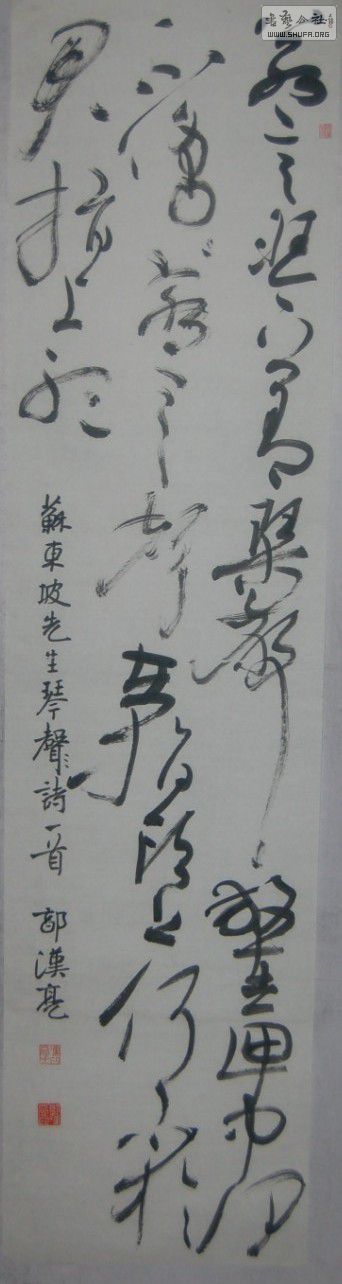 若言上有琴聲放在匣中何
不鳴若言聲在指頭上何不於
君指上聽
蘇東坡先生琴聲詩一首 漢亮
书艺公社
WWW.SHUFA.ORG